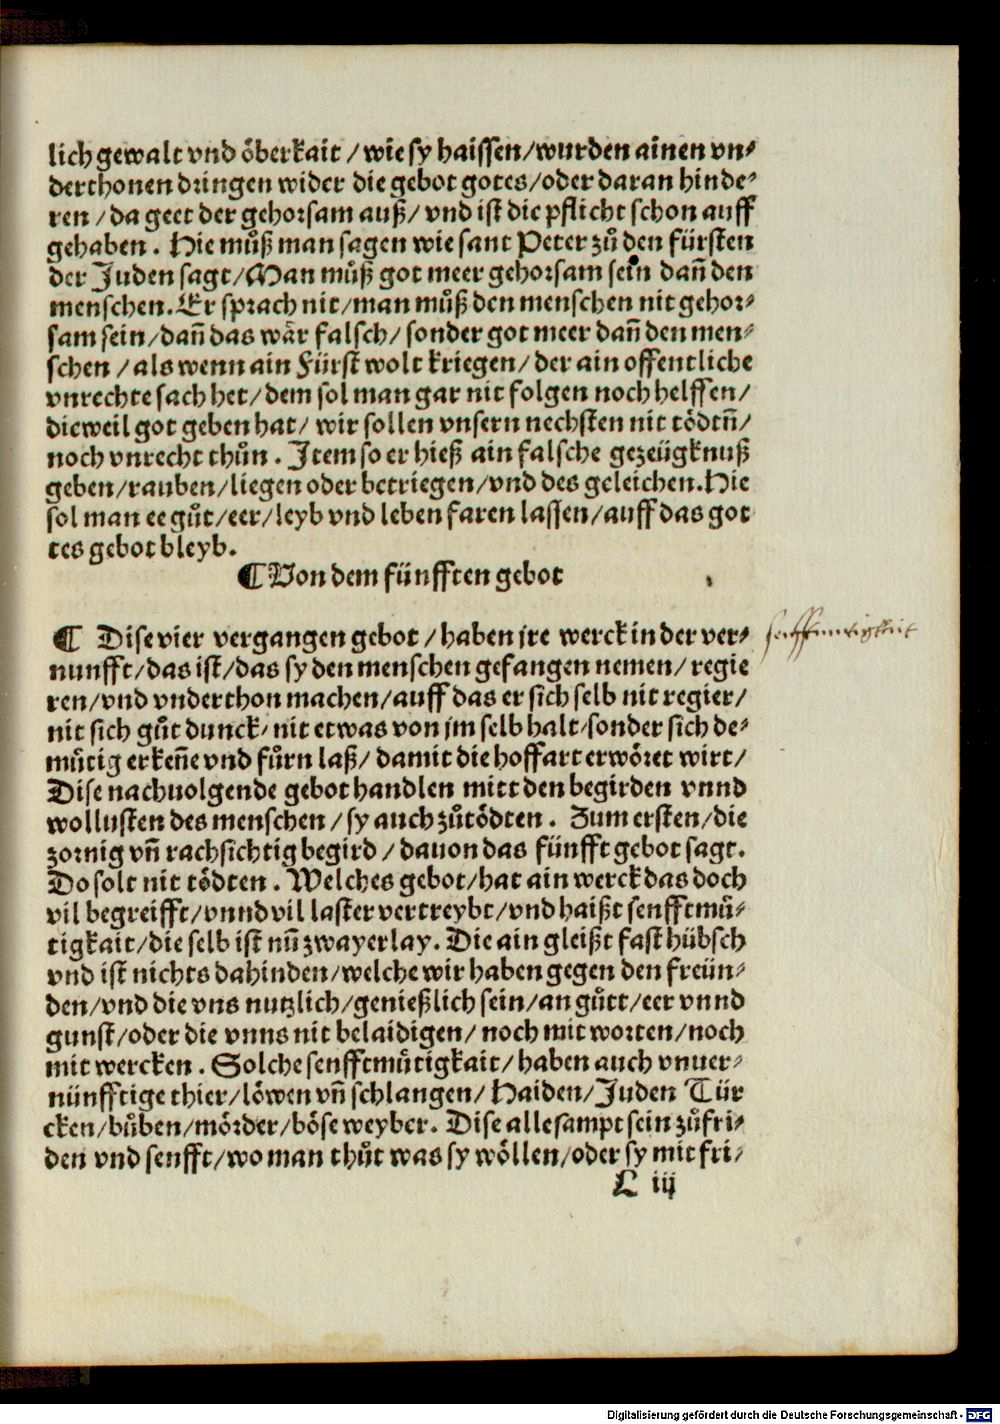 lich gewalt vnd öberkait / wie sy haissen/wurden ainen vn⸗
derthonen dringen wider die gebot gotes/oder daran hinde⸗
ren / da geet der gehorsam auß/ vnd ist die pflicht schon auff
gehaben . Hie můß man sagen wie sant Peter zů den fürsten
der Juden sagt/Man můß got meer gehorsam sein dañ den
menschen.Er sprach nit/man můß den menschen nit gehor⸗
sam sein/dañ das wär falsch/ sonder got meer dañ den men⸗
schen / als wenn ain Fürst wolt kriegen/ der ain offentliche
vnrechte sach het/ dem sol man gar nit folgen noch helffen/
dieweil got geben hat/ wir sollen vnsern nechsten nit tödtñ/
noch vnrecht thůn . Item so er hieß ain falsche gezeügknuß
geben/rauben/liegen oder betriegen/vnd des geleichen.Hie
sol man ee gůt/eer/leyb vnd leben faren lassen/auff das got
tes gebot bleyb.
¶ Von dem fünfften gebot
¶ Dise vier vergangen gebot / haben jre werck in der ver⸗
nunfft/das ist/das sy den menschen gefangen nemen/ regie
ren/vnd vnderthon machen/auff das er sich selb nit regier/
nit sich gůt dunck/ nit etwas von jm selb halt/sonder sich de⸗
můtig erkeñe vnd fůrn laß/ damit die hoffart erwöret wirt/
Dise nachuolgende gebot handlen mitt den begirden vnnd
wollusten des menschen / sy auch zůtödten . Zum ersten/die
zornig vñ rachsichtig begird / dauon das fünfft gebot sagt.
Do solt nit tödten . Welches gebot/hat ain werck das doch
vil begreifft/vnnd vil laster vertreybt/vnd haißt senfftmů⸗
tigkait/die selb ist nũ zwayerlay. Die ain gleißt fast hübsch
vnd ist nichts dahinden/welche wir haben gegen den freün⸗
den/vnd die vns nutzlich/genießlich sein/an gůtt/eer vnnd
gunst/oder die vnns nit belaidigen/ noch mit worten/noch
mit wercken . Solche senfftmůtigkait/ haben auch vnuer⸗
nünfftige thier/löwen vñ schlangen/ Haiden/Juden Tür
cken/bůben/mörder/böse weyber. Dise alle sampt sein zůfri⸗
den vnd senfft/wo man thůt was sy wöllen/oder sy mit fri⸗
L iij
senfftmutigkait
Digitalisierung gefördert durch die Deutsche Forschungsgemeinschaft - DFG